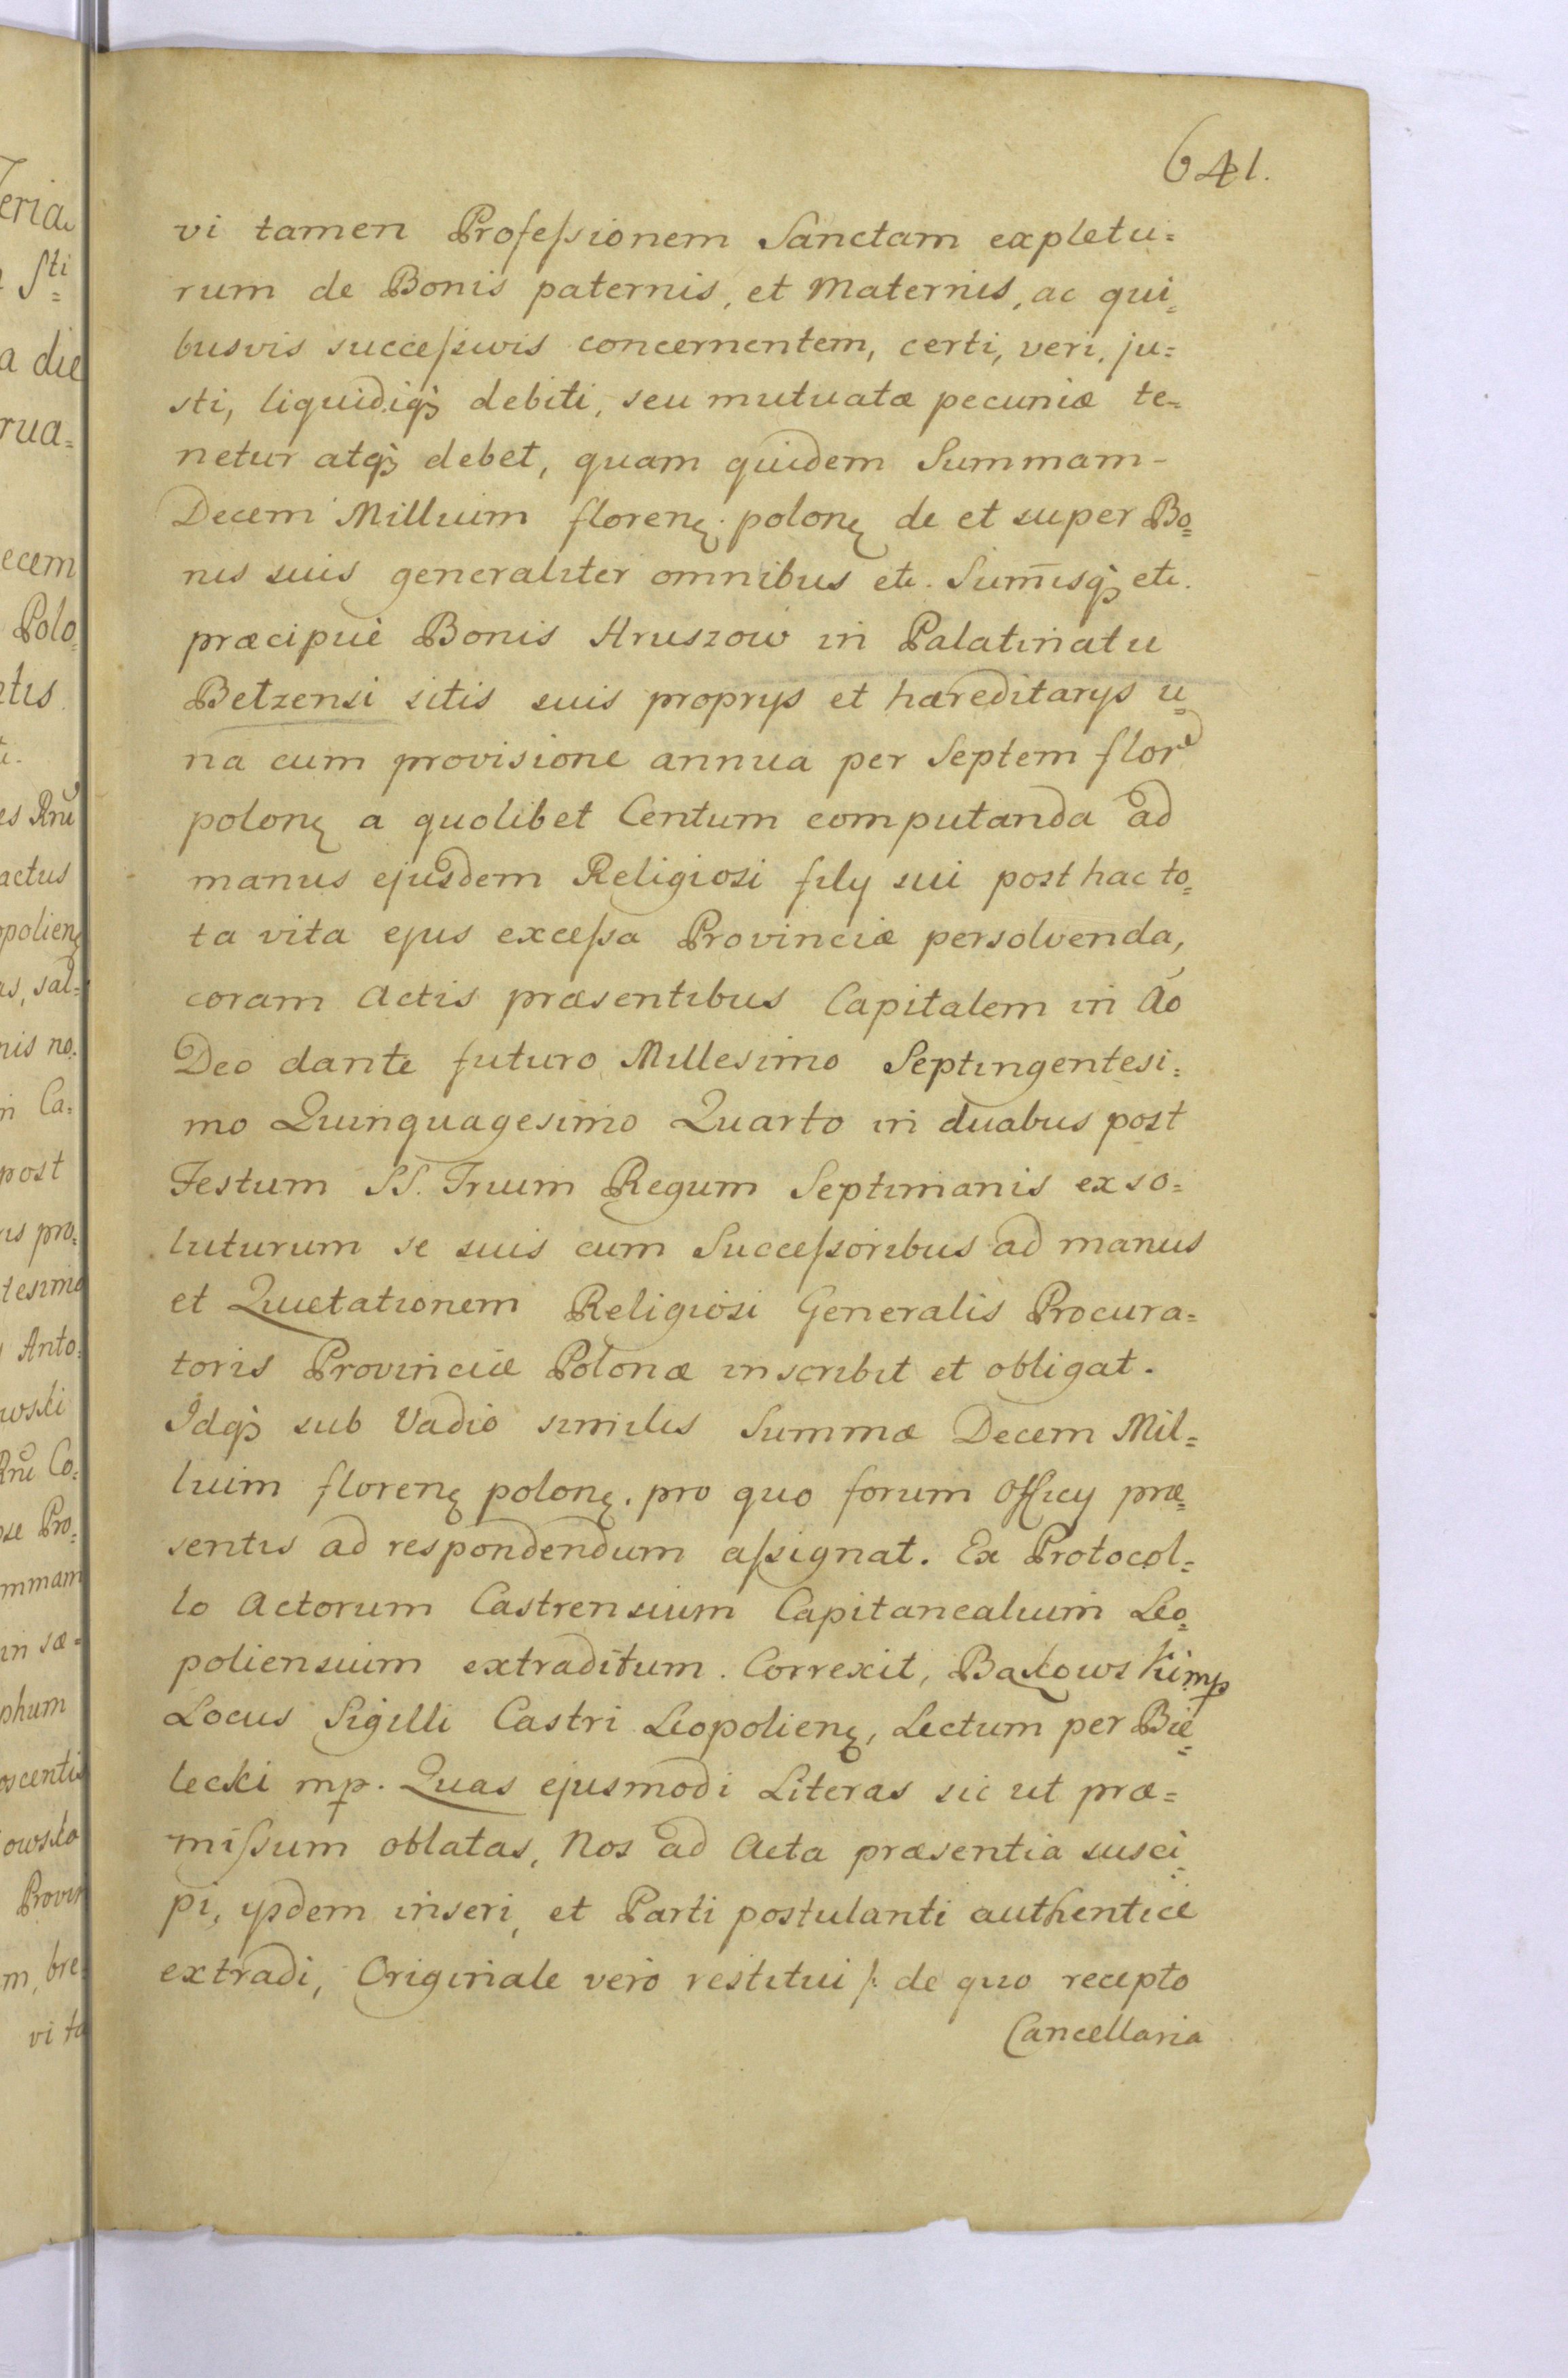 641.
vi tamen Professionem Sanctam expletu=
rum de Bonis paternis, et Maternis, ac qui=
busvis successivis concernentem, certi, veri, ju=
sti, liquidiq₃ debiti, seu mutuatæ pecuniæ te=
netur atq₃ debet, quam quidem Summam -
Decem Millium floren. polon. de et super Bo=
nis suis generaliter omnibus etc. Sum̄isq₃ etc.
præcipuè Bonis Hruszow in Palatinatu
Betzensi sitis suis proprys et hæreditarys u=
na cum provisione annua per Septem flor
polon. a quolibet Centum computanda ad
manus ejusdem Religiosi fily sui post hac to=
ta vita ejus excessa Provinciæ persolvenda,
coram Actis præsentibus Capitalem in Aō
Deo dante futuro Millesimo Septingentesi=
mo Quinquagesimo Quarto in duabus post
Festum SS. Trium Regum Septimanis exso=
luturum se suis cum Successoribus ad manus
et Quietationem Religiosi Generalis Procura=
toris Provinciæ Polonæ inscribit et obligat.
Idq₃ sub Vadio similis Summæ Decem Mil=
lium floren. polon. pro quo forum Officy præ=
sentis ad respondendum assignat. Ex Protocol=
lo Actorum Castrensium Capitanealium Leo=
poliensium extraditum. Correxit, Bakowski mp
Locus Sigilli Castri Leopolien., Lectum per Bie=
lecki mp. Quas ejusmodi Literas sic ut præ=
missum oblatas, Nos ad Acta præsentia susci=
pi, ysdem inseri, et Parti postulanti authenticè
extradi, Originale verò restitui /: de quo recepto
Cancellaria